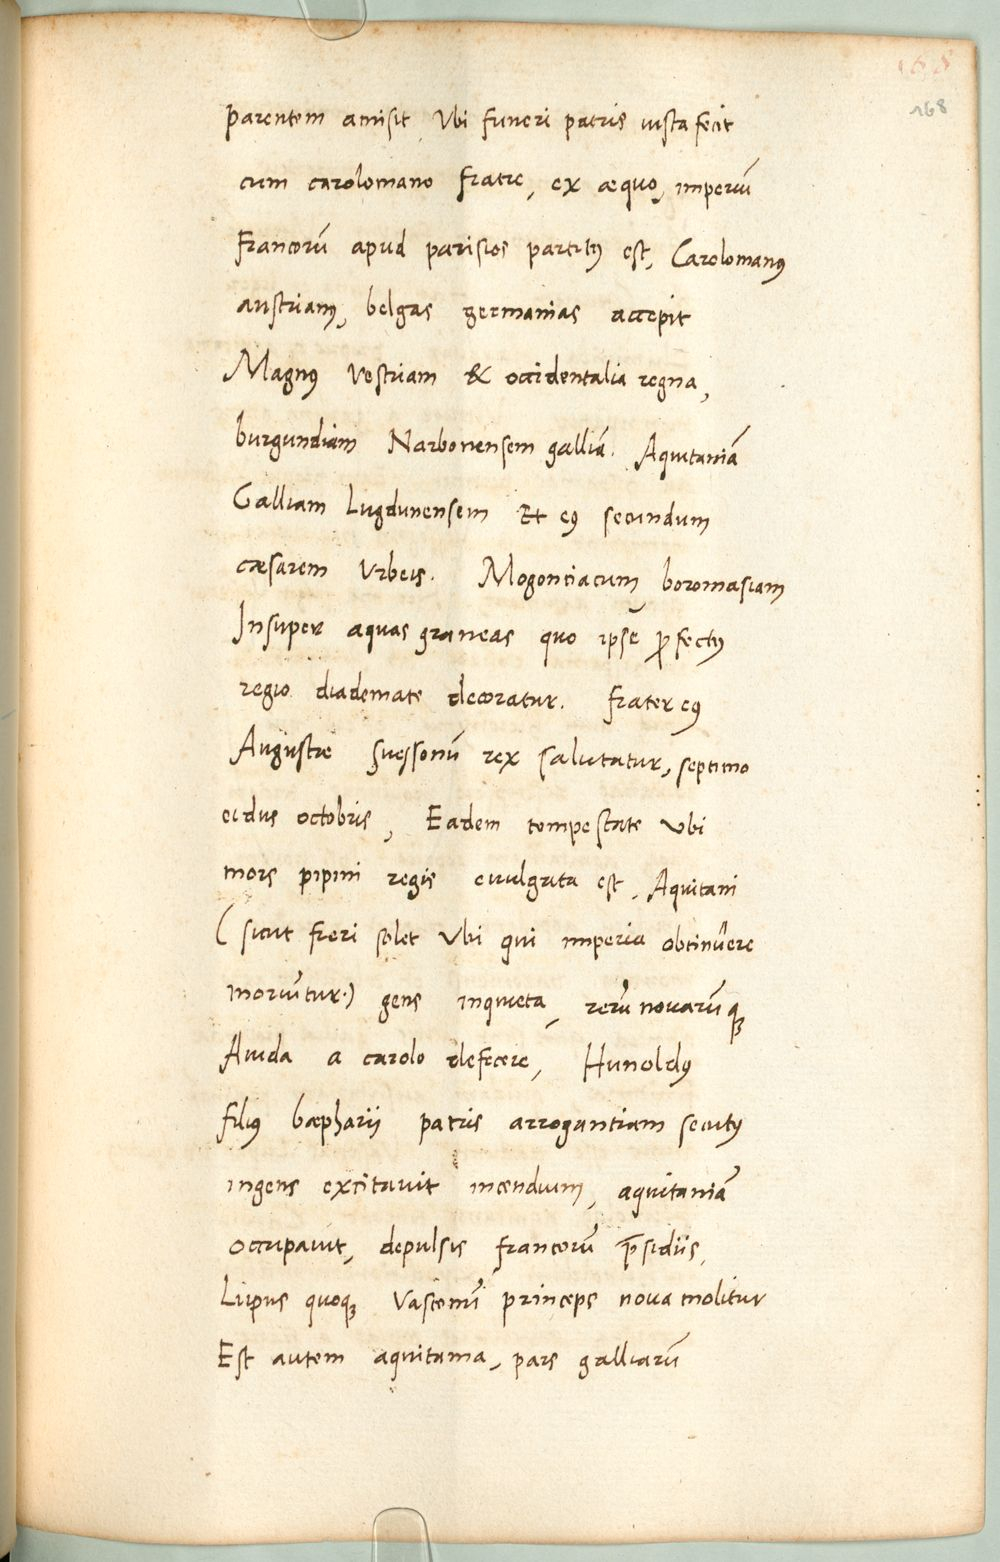 168
168
parentem amisit Vbi funeri patris iusta fecit
cum carolomano fratre, ex æquo, imperiũ
Francorũ apud parisios partitꝰ est, Carolomanꝰ
austriam, belgas germanias accepit
Magnꝰ Vestriam & occidentalia regna,
burgundiam Narbonensem galliã. Aquitaniã
Galliam Lugdunensem Et eꝰ secundum
cæsarem Vrbeis. Mogontiacum boromasiam
Insuper aquas graneas quo ipse ꝓfectꝰ
regio diademate decoratur. frater eꝰ
Augustæ Suessonũ rex salutatur, septimo
eidus octobris, Eadem tempestate Vbi
mors pipini regis euulgata est, Aquitani
( sicut fieri solet Vbi qui imperia obtinuere
moriũtur.) gens inquieta, rerũ nouarũqꝫ
Auida a carolo defecere, Hunoldꝰ
filiꝰ bæpharii patris arrogantiam secutꝰ
ingens excitauit incendium, aquitaniã
occupauit, depulsis francorũ p̃sidiis,
Lupus quoqꝫ Vasconũ princeps noua molitur
Est autem aquitania, pars galliarũ